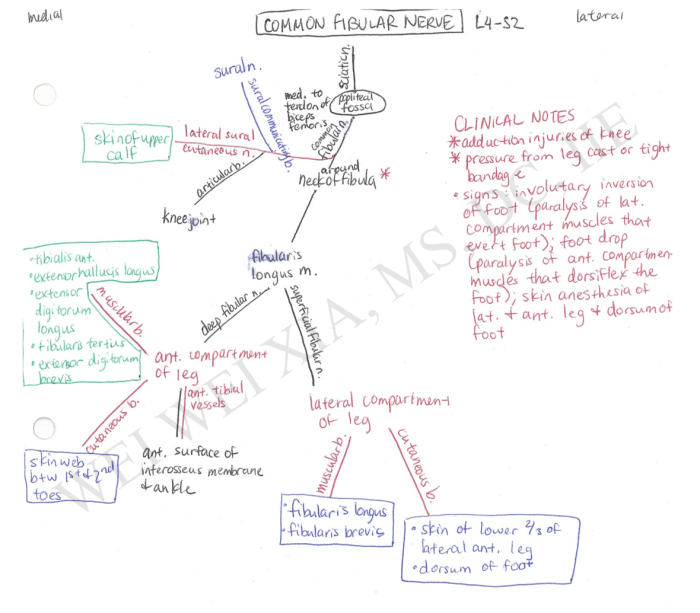 medial
COMMON FIBULAR NERVE L4-S2
lateral
sciatic n.
popliteal
fossa
med. to
tendon of
biceps
femoris
common
fibular n.
sural n.
sural communicating b.
lateral sural
cutaneous n.
skin of upper
calf
articular b.
knee joint
around
neck of fibula *
CLINICAL NOTES
* adduction injuries of knee
* pressure from leg cast or tight
bandage
• signs: involutary inversion
of foot (paralysis of lat.
compartment muscles that
evert foot); foot drop
(paralysis of ant. compartmen
muscles that dorsiflex the
foot); skin anesthesia of
lat. + ant. leg + dorsum of
foot
fibularis
longus m.
deep fibular n.
superficial fibular n.
• tibialis ant.
• extensor hallucis longus
• extensor
digitorum
longus
• fibularis tertius
• extensor digitorum
brevis
muscular b.
ant. compartment
of leg
cutaneous b.
ant. tibial
vessels
skin web
btw 1st + 2nd
toes
ant. surface of
interosseus membrane
+ ankle
lateral compartment
of leg
muscular b.
cutaneous b.
• fibularis longus
• fibularis brevis
• skin of lower 2/3 of
lateral ant. leg
• dorsum of foot
WEI WEI XIA, MS, DC, IIE